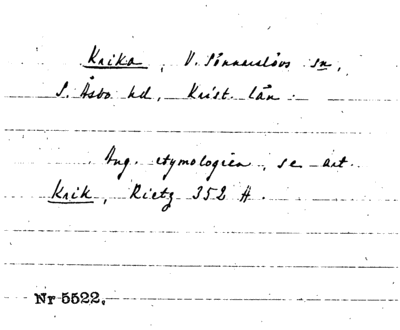 Krika, V. Sönnarslövs sn,
S. Åsbo hd, Krist. län.
Ang. etymologien, se art.
Krik, Rietz 352 ff.
Nr 5522.